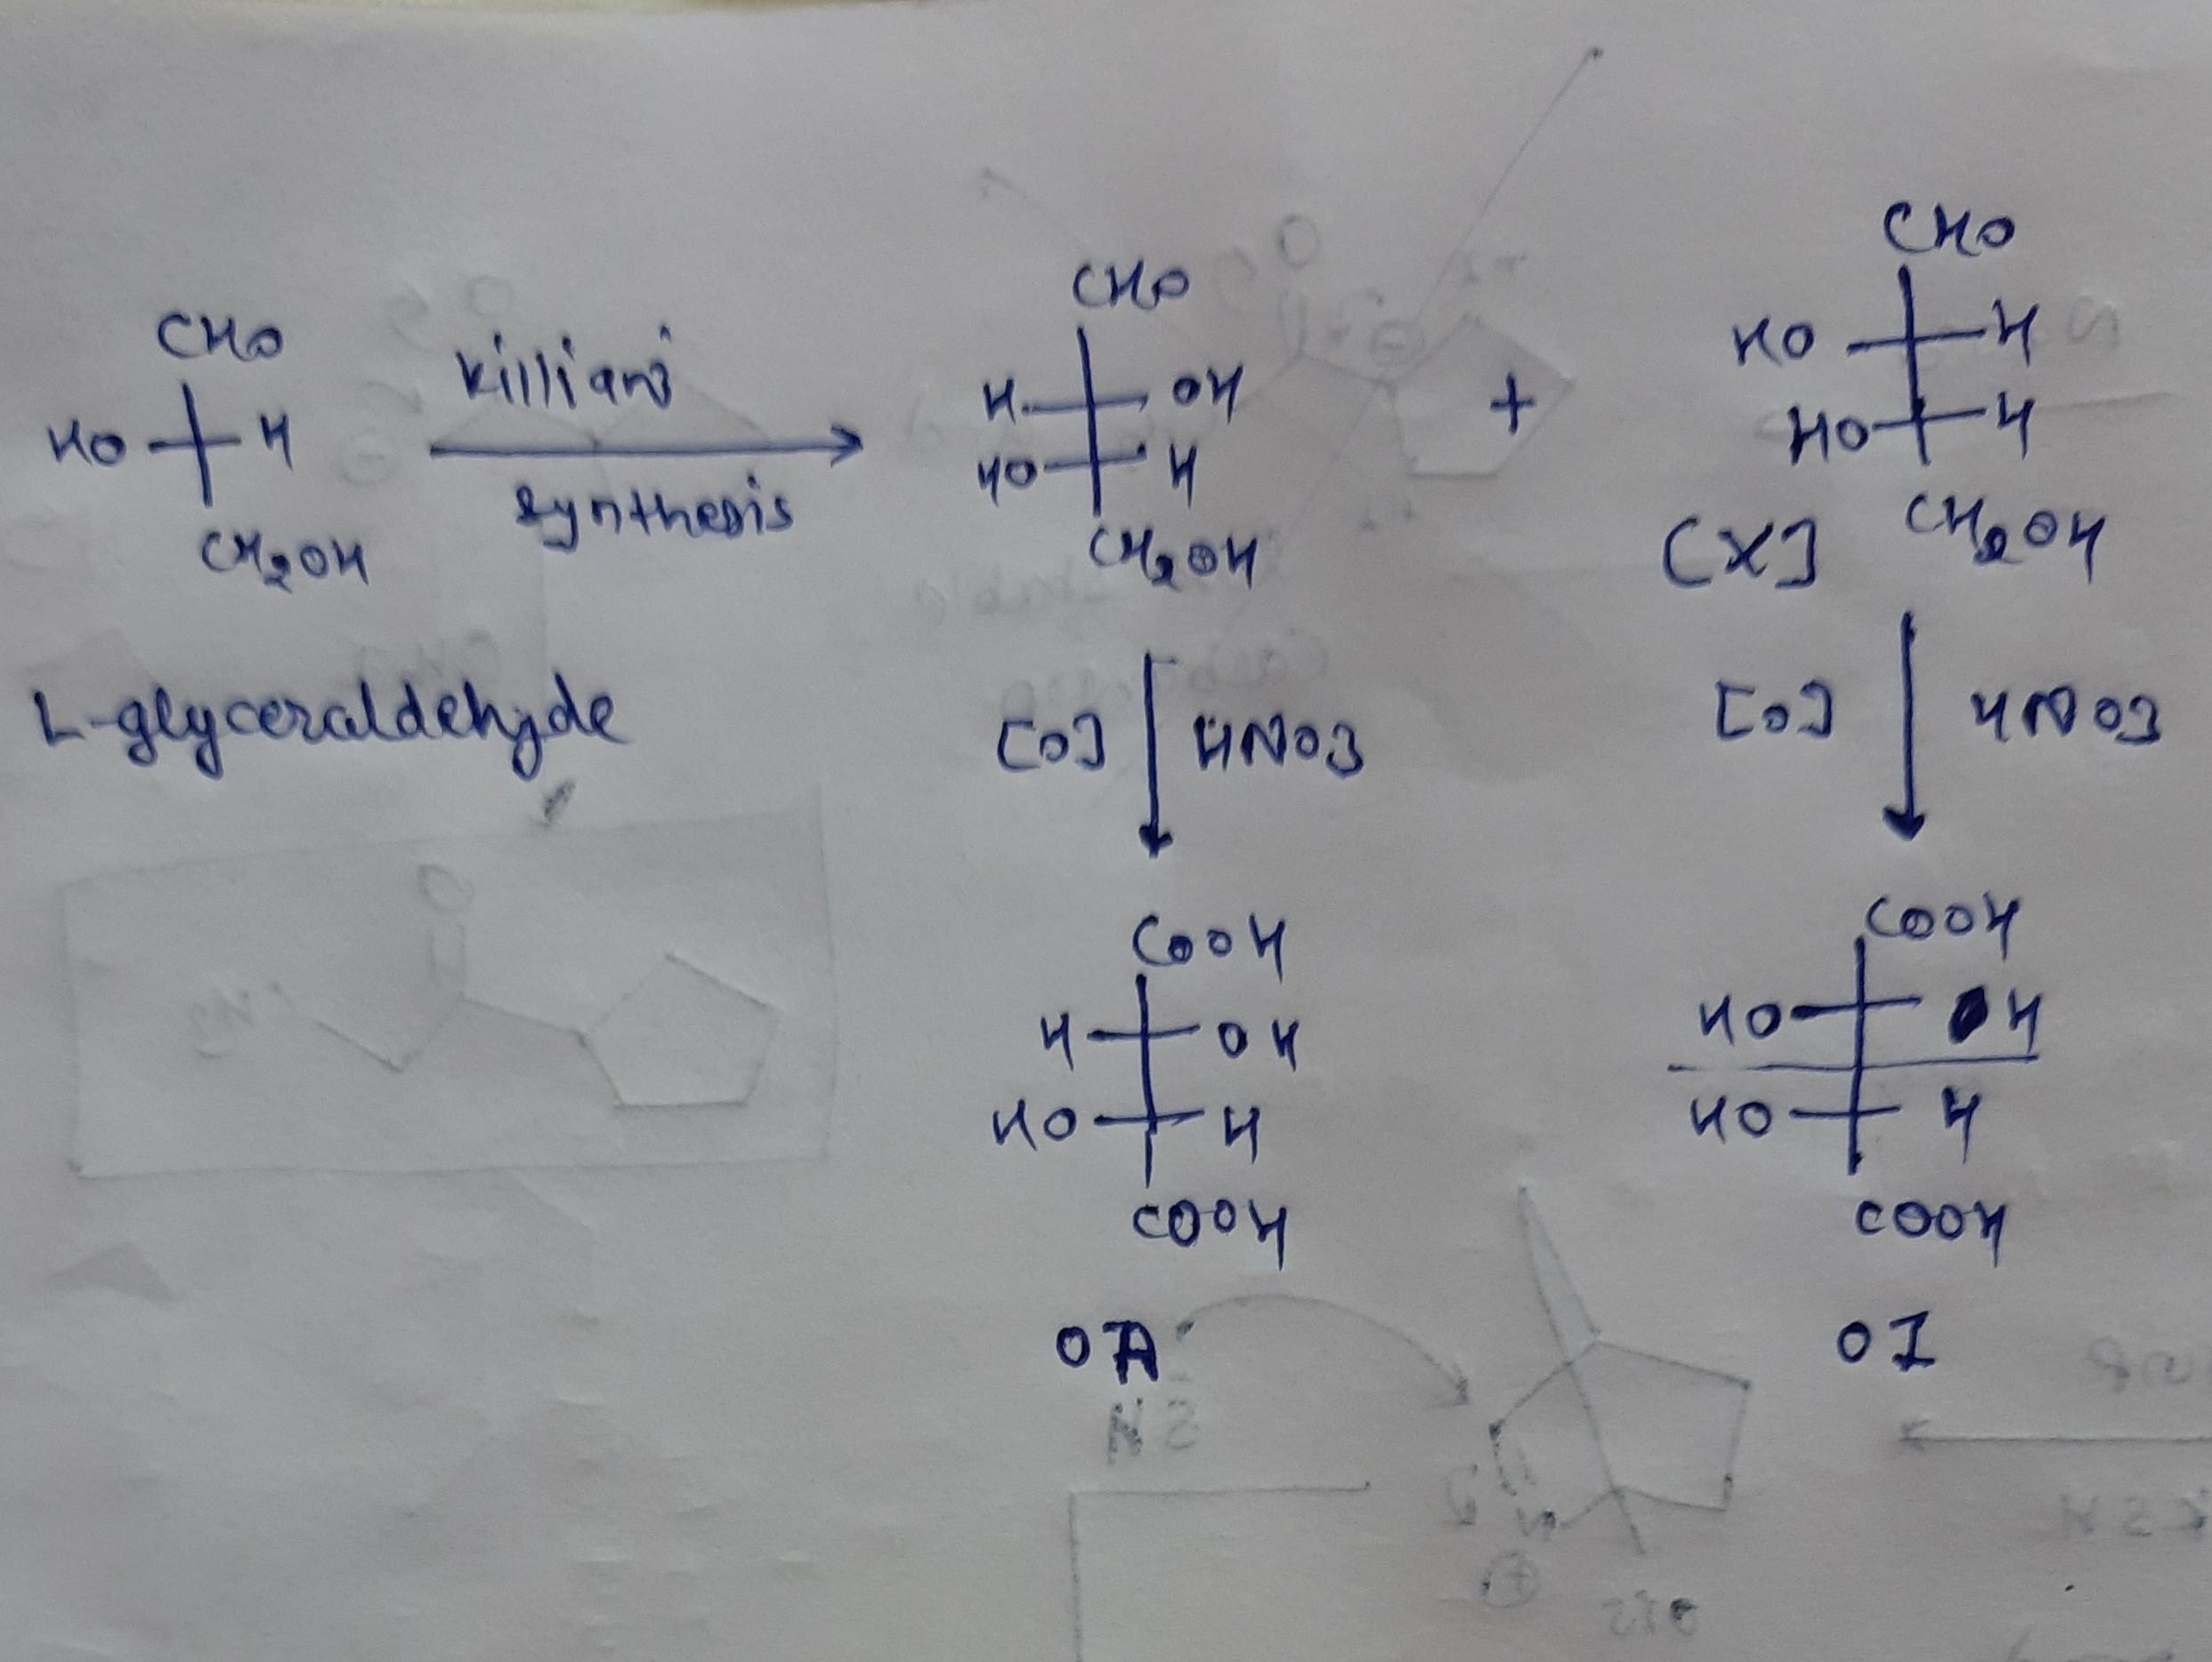 CHO
HO H
CH2OH
L-glyceraldehyde
killiani
synthesis
CHO
H OH
HO H
CH2OH
+
CHO
HO H
HO H
[X] CH2OH
[O] HNO3
[O] HNO3
COOH
H OH
HO H
COOH
OA
COOH
HO H
HO H
COOH
OI